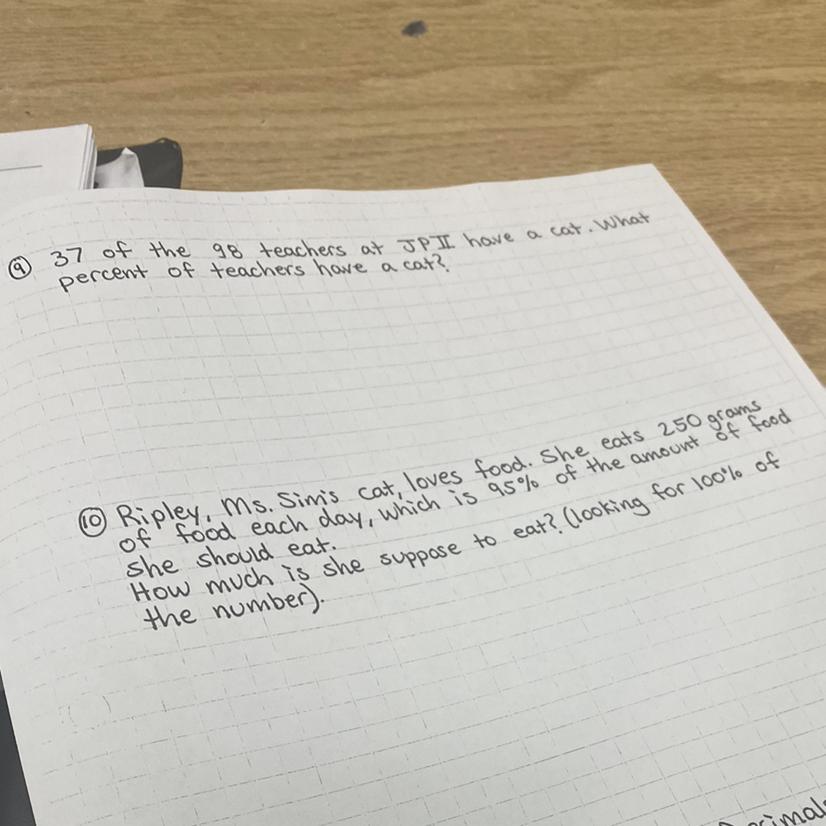 ⑨ 37 of the 98 teachers at JPII have a cat. What
percent of teachers have a cat?
⑩ Ripley, Ms. Sim's cat, loves food. She eats 250 grams
of food each day, which is 95% of the amount of food
she should eat.
How much is she suppose to eat? (looking for 100% of
the number).